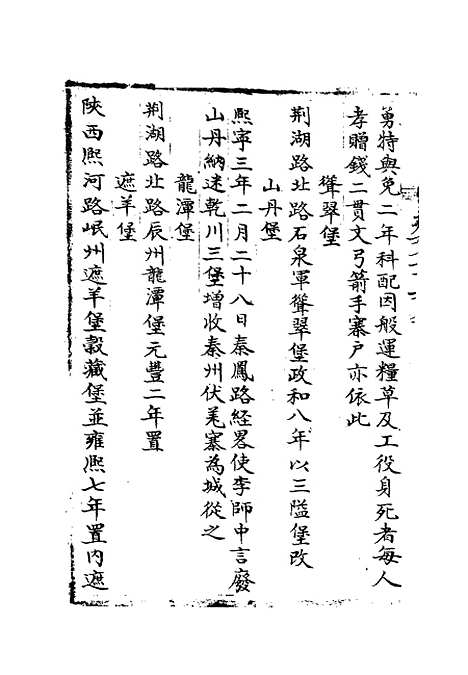 勇特與免二年科配因般運糧草及工役身死者每人
孝贈錢二貫文弓箭手寨户亦依此
聳翠堡
荆湖路北路石泉軍聳翠堡政和八年以三隘堡改
山丹堡
熈寧三年二月二十八日秦鳳路經畧使李師中言廢
山丹納迷乾川三堡增收秦州伏羌寨為城從之
龍潭堡
荆湖路北路辰州龍潭堡元豐二年置
遮羊堡
陜西熈河路岷州遮羊堡穀藏堡並雍熈七年置内遮